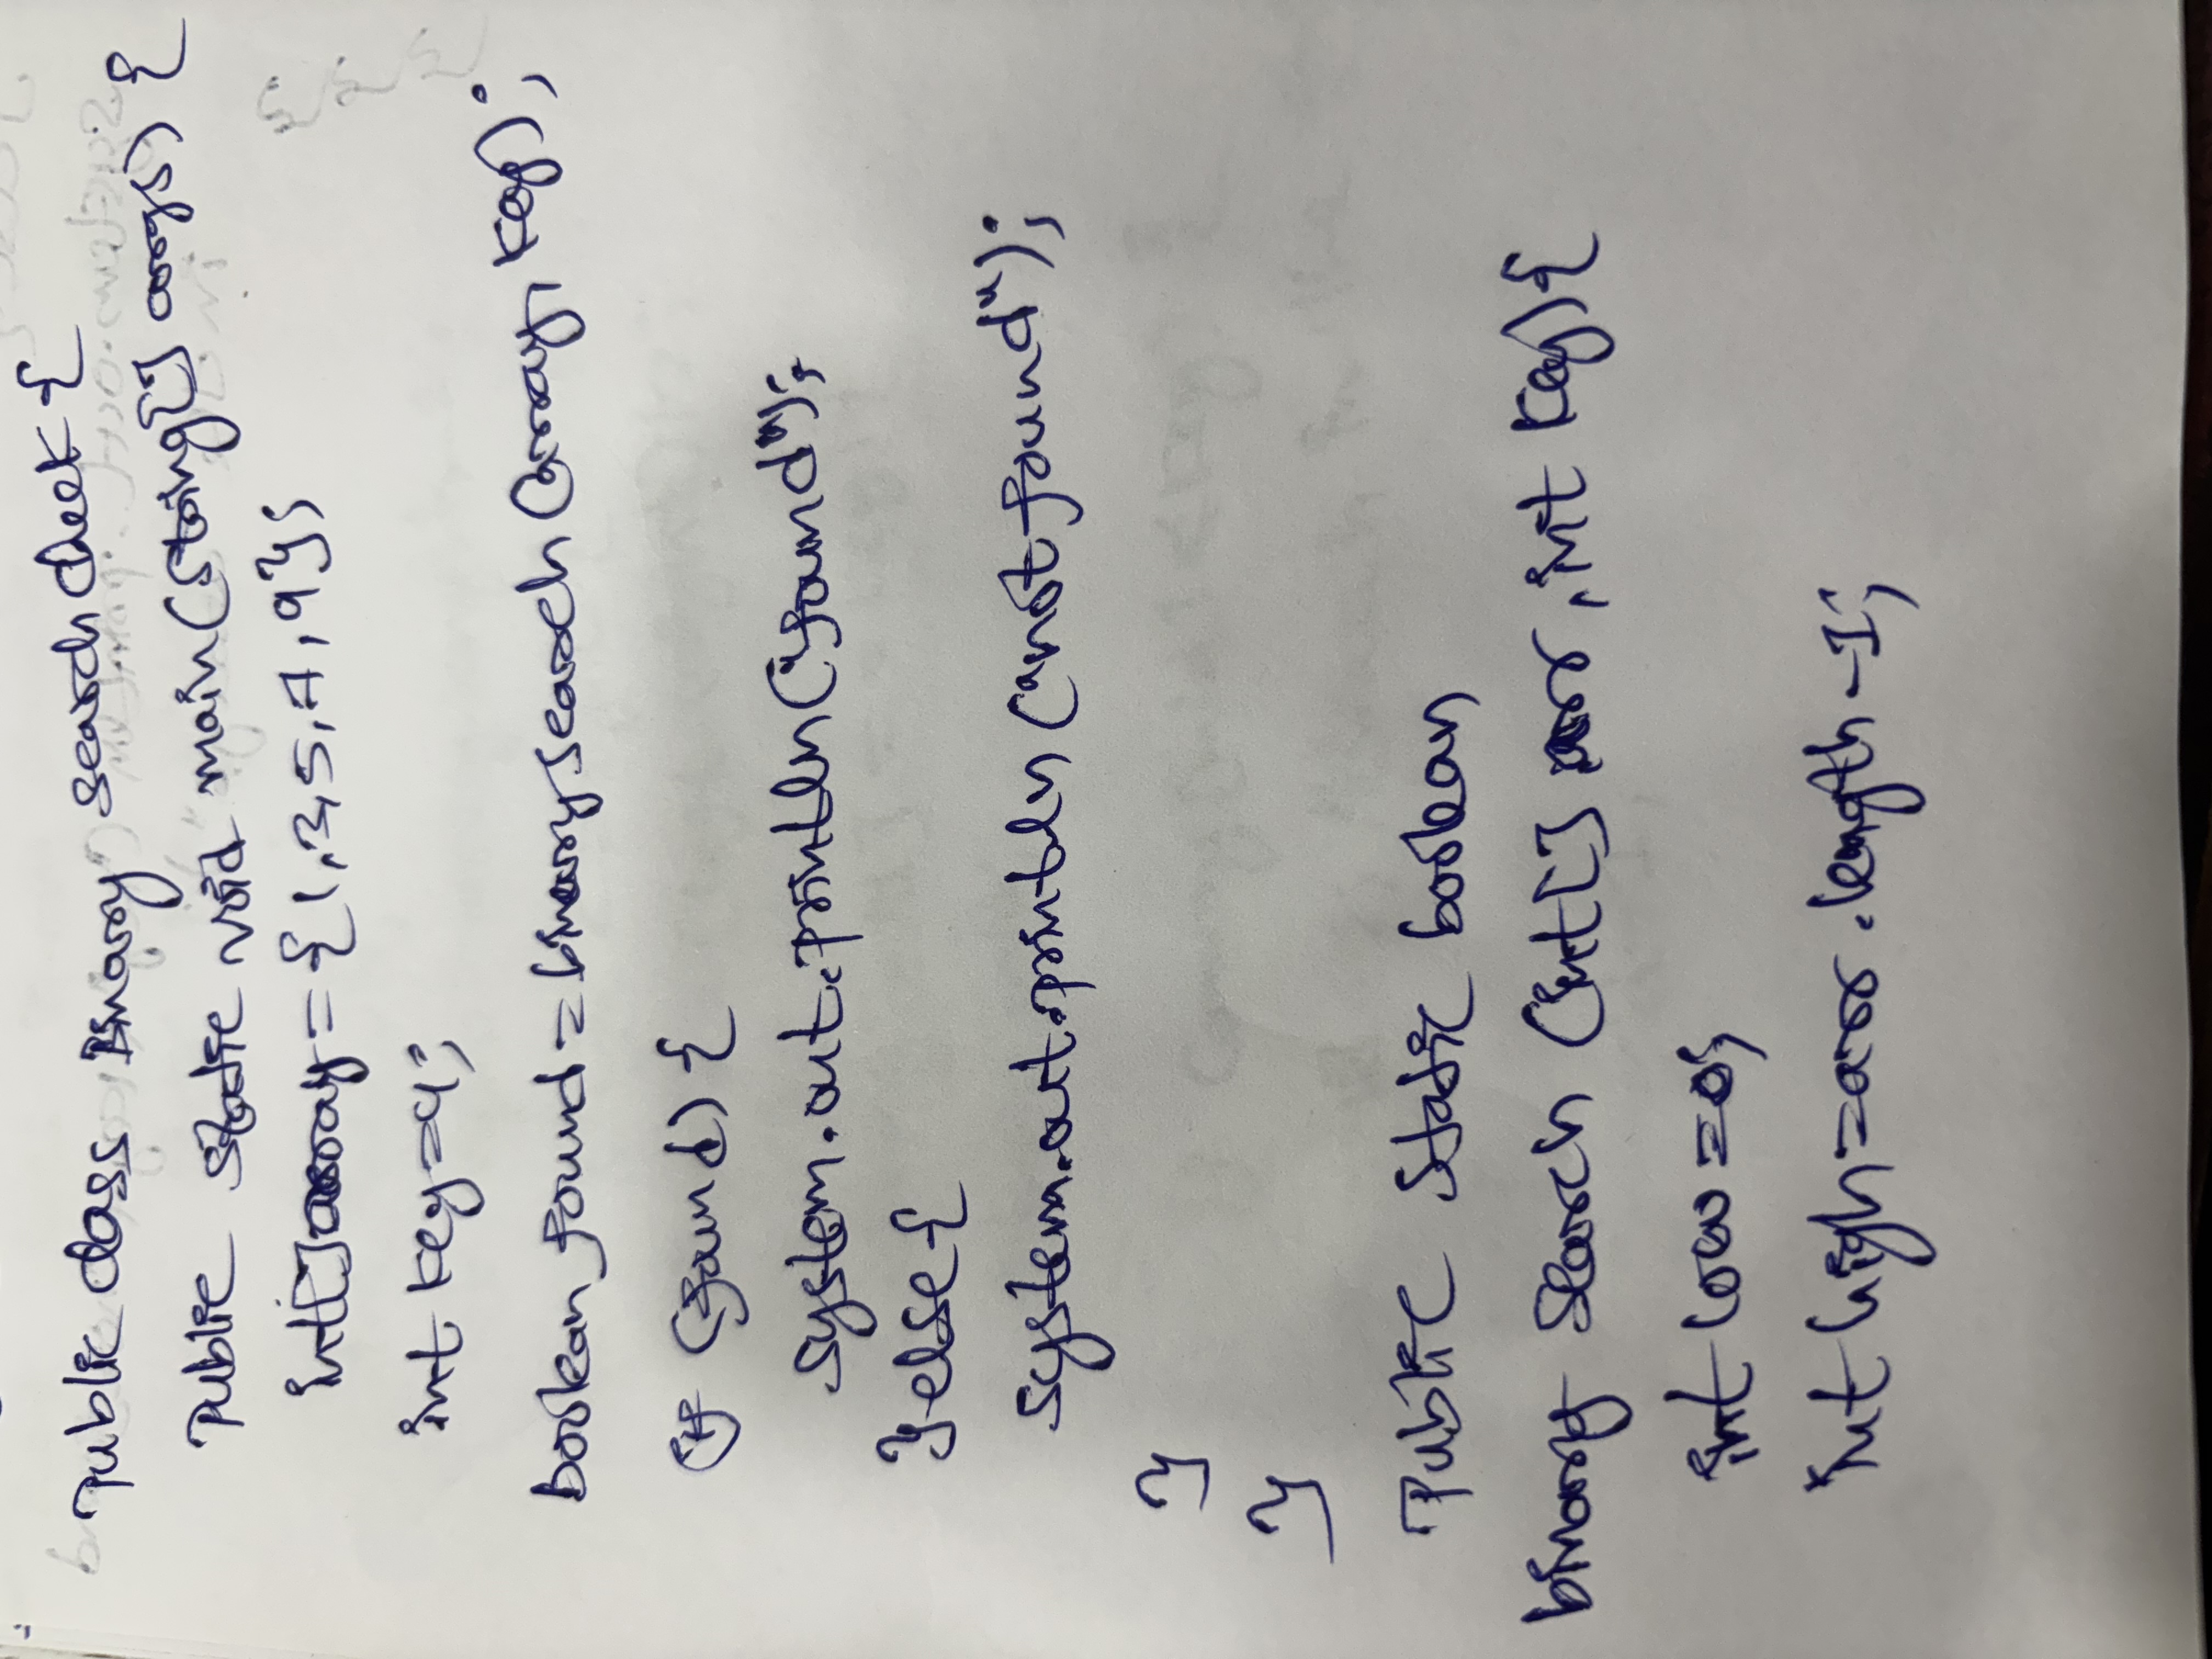 Public class Binary search check {
Public static void main(String[] args) {
int[] array = {1,3,5,7,9};
int key=9;
boolean found = binarysearch (array, key);
if (found) {
system.out.println("found");
}else{
system.out.println ("not found");
}
}
Public static boolean
binary search (int[] arr, int key){
int low =0;
int high = arr.length -1;